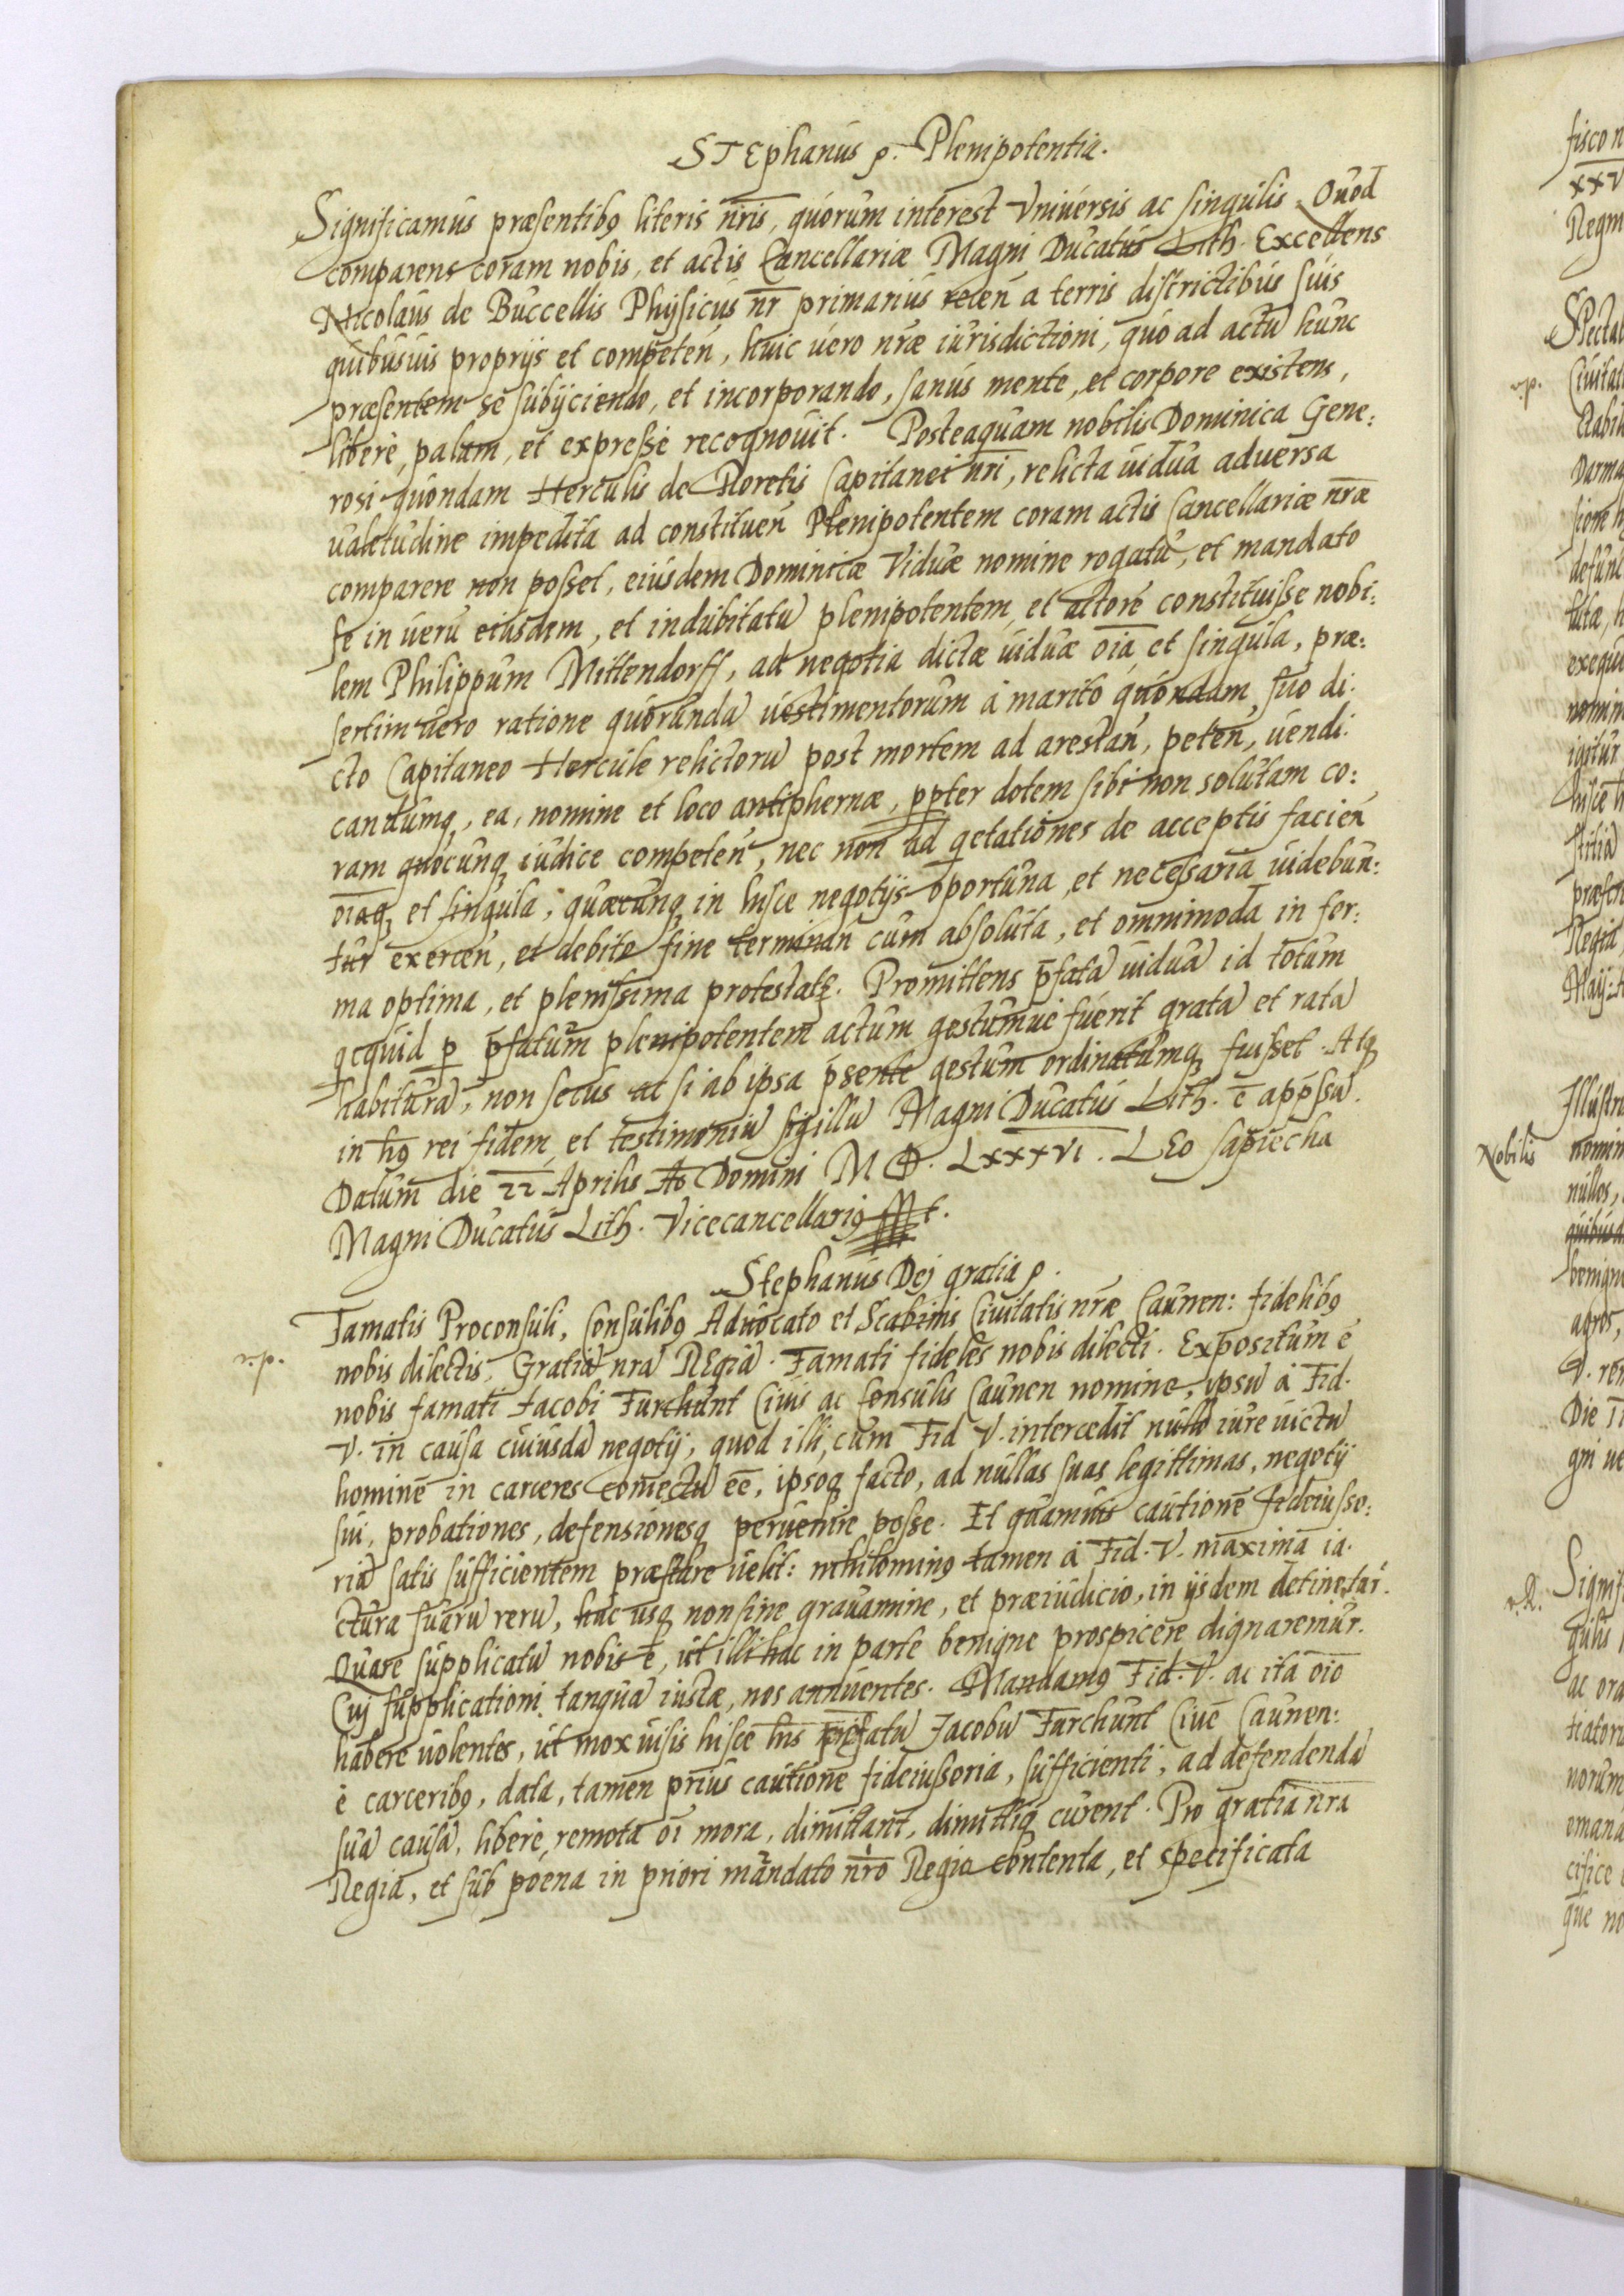 STEphanus ꝭ. Plenipotentia.
Significamus præsentibꝰ literis nr̄is, quorum interest Vniuersis ac singulis. Quod
comparens coram nobis, et actis Cancellariæ Magni Ducatus Lith. Excellens
Nicolaus de Buccellis Physicus nr̄ primarius receñ a terris districtibus suis
quibusuis proprijs et competeñ, huic uero nr̄æ iurisdictioni, quo ad actū hunc
præsentem se subijciendo, et incorporando, sanus mente, et corpore existens,
libere, palam, et expresse recognouit. Posteaquam nobilis Dominica Gene:
rosi quondam Herculis de Ploretis Capitanei nr̄i, relicta uidua aduersa
ualetudine impedita ad constitueñ Plenipotentem coram actis Cancellariæ nr̄æ
comparere non posset, eiusdem Dominicæ Viduæ nomine rogatu, et mandato
se in uerū eiusdem, et indubitatū plenipotentem, et actorē constituisse nobi:
lem Philippum Mittendorff, ad negotia dictæ uiduæ oīa et singula, præ:
sertim uero ratione quorundā uestimentorum à marito quondam suo di:
cto Capitaneo Hercule relictorū post mortem ad arestañ, peteñ, uendi:
candumq́ꝫ, ea, nomine et loco antiphernæ, ꝓpter dotem sibi non solutam co:
ram quocunqꝫ iudice competeñ, nec non ad qetationes de acceptis facieñ
oīaqꝫ et singula, quæcunqꝫ in hisce negotijs oportuna, et necessaria uidebun:
tur exerceñ, et debite fine terminañ cum absoluta, et omnimoda in for:
ma optima, et plenissima protestatꝫ. Promittens p̄fata uidua id totum
qcquid ꝑ p̄fatum plenipotentem actum gestumue fuerit gratū et ratū
habitura, non secus ac si ab ipsa p̄sente gestum ordinatumqꝫ fuisset. Atqꝫ
in hꝰ rei fidem, et testimoniū sigillū Magni Ducatus Lith. ē app̄ssū.
Datum die 22 Aprilis Aō Domini M D. LXXXVI. LEo Sapiecha
Magni Ducatus Lith. Vicecancellariꝰ
Stephanus Dej gratia ꝭ.
Famatis Proconsuli, Consulibꝰ Aduocato et Scabinis Ciuitatis nr̄æ Caunen: fidelibꝰ
r.p. nobis dilectis, Gratiā nrā Regiā. Famati fideles nobis dilecti. Expositum ē
nobis famati Jacobi Furchunt Ciuis ac Consulis Caunen nomine, ipsū à Fid.
V. in causa cuiusdā negotij, quod illi, cum Fid V. intercedit nullo iure uictū
hominē in carceres coniectū eē, ipsoqꝫ facto, ad nullas suas legittimas, negotij
sui, probationes, defensionesqꝫ peruenire posse. Et quamuis cautionē fideiusso:
riā satis sufficientem præstare uelit: nihilominꝰ tamen à Fid. V. maxima ia:
ctura suarū rerū, huc usqꝫ non sine grauamine, et præiudicio, in ijsdem detinetur.
Quare supplicatū nobis ē, ut illi hac in parte benigne prospicere dignaremur.
Cuj supplicationi, tanquā iustæ, nos annuentes. Mandamꝰ Fid. V. ac ita oīo
habere uolentes, ut mox uisis hisce lrīs præfatū Jacobū Furchunt Ciuē Caunen:
è carceribꝰ, data, tamen prius cautione fideiussoria, sufficienti, ad defendendā
suā causā, libere, remota oī mora, dimittant, dimittiqꝫ curent. Pro gratia nr̄a
Regia, et sub poena in priori mandato nr̄o Regio contenta, et specificata